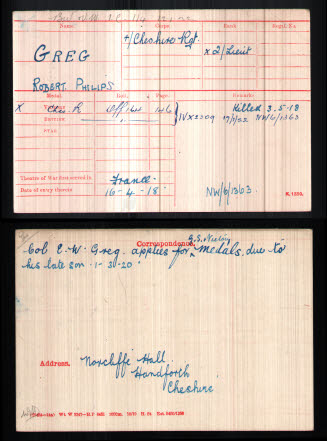 Name.
Corps.
Rank.
Regtl. No.
GREG
4/Cheshire Rgt.
x 2/Lieut
ROBERT PHILIPS
Medal.
Roll.
Page.
Remarks.
X
VICTORY
Off/
146
Killed 3.5.18
BRITISH
IVX2309
NW/6/13163
STAR
Theatre of War first served in
France.
Date of entry therein
16-4-18.
NW/6/13163.
K. 1380.
Correspondence.
Col E.W. Greg. applies for medals due to
his late son. 1-3-20.
Address.
Norcliffe Hall
Handforth
Cheshire